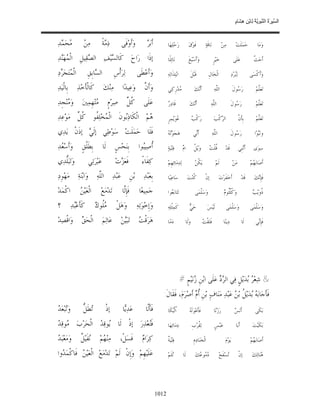 السِّيرَةُ النَّبَوِيَّةُ لِابْنِ هِشَامٍ
وَمَا حَمَلَتْ مِنْ نَاقَةٍ فَوْقَ رَحْلِهَا أَبَرَّ وَأَوْفَى ذِمَّةً مِنْ مُحَمَّدِ
أَحَثَّ عَلَى خَيْرٍ وَأَسْبَغَ نَائِلًا إِذَا رَاحَ كَالسَّيْفِ الصَّقِيلِ الْمُهَنَّدِ
وَأَكْسَى لِبُرْدِ الْخَالِ قَبْلَ ابْتِذَالِهِ وَأَعْطَى لِرَأْسِ السَّابِقِ الْمُتَجَرِّدِ
تَعَلَّمْ رَسُولَ اللَّهِ أَنَّكَ مُدْرِكِي وَأَنَّ وَعِيدًا مِنْكَ كَالْأَخْذِ بِالْيَدِ
تَعَلَّمْ رَسُولَ اللَّهِ أَنَّكَ قَادِرٌ عَلَى كُلِّ صِرْمٍ مُتْهِمِينَ وَمُنْجِدِ
تَعَلَّمْ بِأَنَّ الرَّكْبَ رَكْبُ عُوَيْمِرٍ هُمُ الْكَاذِبُونَ الْمُخْلِفُو كُلِّ مَوْعِدِ
وَنَبَّوْا رَسُولَ اللَّهِ أَنِّي هَجَوْتُهُ فَلَا حَمَلَتْ سَوْطِي إِلَيَّ إِذَنْ يَدِي
سِوَى أَنَّنِي قَدْ قُلْتُ وَيْلُ امِّ فِتْيَةٍ أُصِيبُوا بِنَحْسٍ لَا بِطَلْقٍ وَأَسْعُدِ
أَصَابَهُمْ مَنْ لَمْ يَكُنْ لِدِمَائِهِمْ كِفَاءً فَعَزَّتْ عَبْرَتِي وَتَبَلُّدِي
فَإِنَّكَ قَدْ أَخْفَرْتَ إِنْ كُنْتَ سَاعِيًا بِعَبْدِ بْنِ عَبْدِ اللَّهِ وَابْنَةِ مَهْوَدِ
ذُؤَيْبٌ وَكُلْثُومٌ وَسَلْمَى تَتَابَعُوا جَمِيعًا فَإِلَّا تَدْمَعْ الْعَيْنُ اكْمَدُ
وَسَلْمَى وَسَلْمَى لَيْسَ حَيٌّ كَمِثْلِهِ وَإِخْوَتِهِ وَهَلْ مُلُوكٌ كَأَعْبُدِ ؟
فَإِنِّي لَا دِينًا فَتَقْتُ وَلَا دَمًا هَرَقْتُ تَبَيَّنْ عَالِمَ الْحَقِّ وَاقْصِدْ
شِعْرُ بُدَيْلٍ فِي الرَّدِّ عَلَى ابْنِ زُنَيْمٍ
فَأَجَابَهُ بُدَيْلُ بْنُ عَبْدِ مَنَافٍ بْنِ أُمِّ أَصْرَمَ، فَقَالَ:
بَكَى أَنَسٌ رَزْنًا فَأَعْوَلَهُ الْبُكَا فَأَلَّا عَدِيًّا إِذْ تُطَلُّ وَتُبْعَدُ
بَكَيْتَ أَبَا عَبْسٍ لِقُرْبِ دِمَائِهَا فَتُعْذِرَ إِذْ لَا يُوقِدُ الْحَرْبَ مُوقِدُ
أَصَابَهُمْ يَوْمَ الْخَنَادِمِ فِتْيَةٌ كِرَامٌ فَسَلْ، مِنْهُمْ نُفَيْلٌ وَمَعْبَدُ
هُنَالِكَ إِنْ تُسْفَحْ دُمُوعُكَ لَا تُلَمْ عَلَيْهِمْ وَإِنْ لَمْ تَدْمَعْ الْعَيْنُ فَاكْمَدُوا
1012